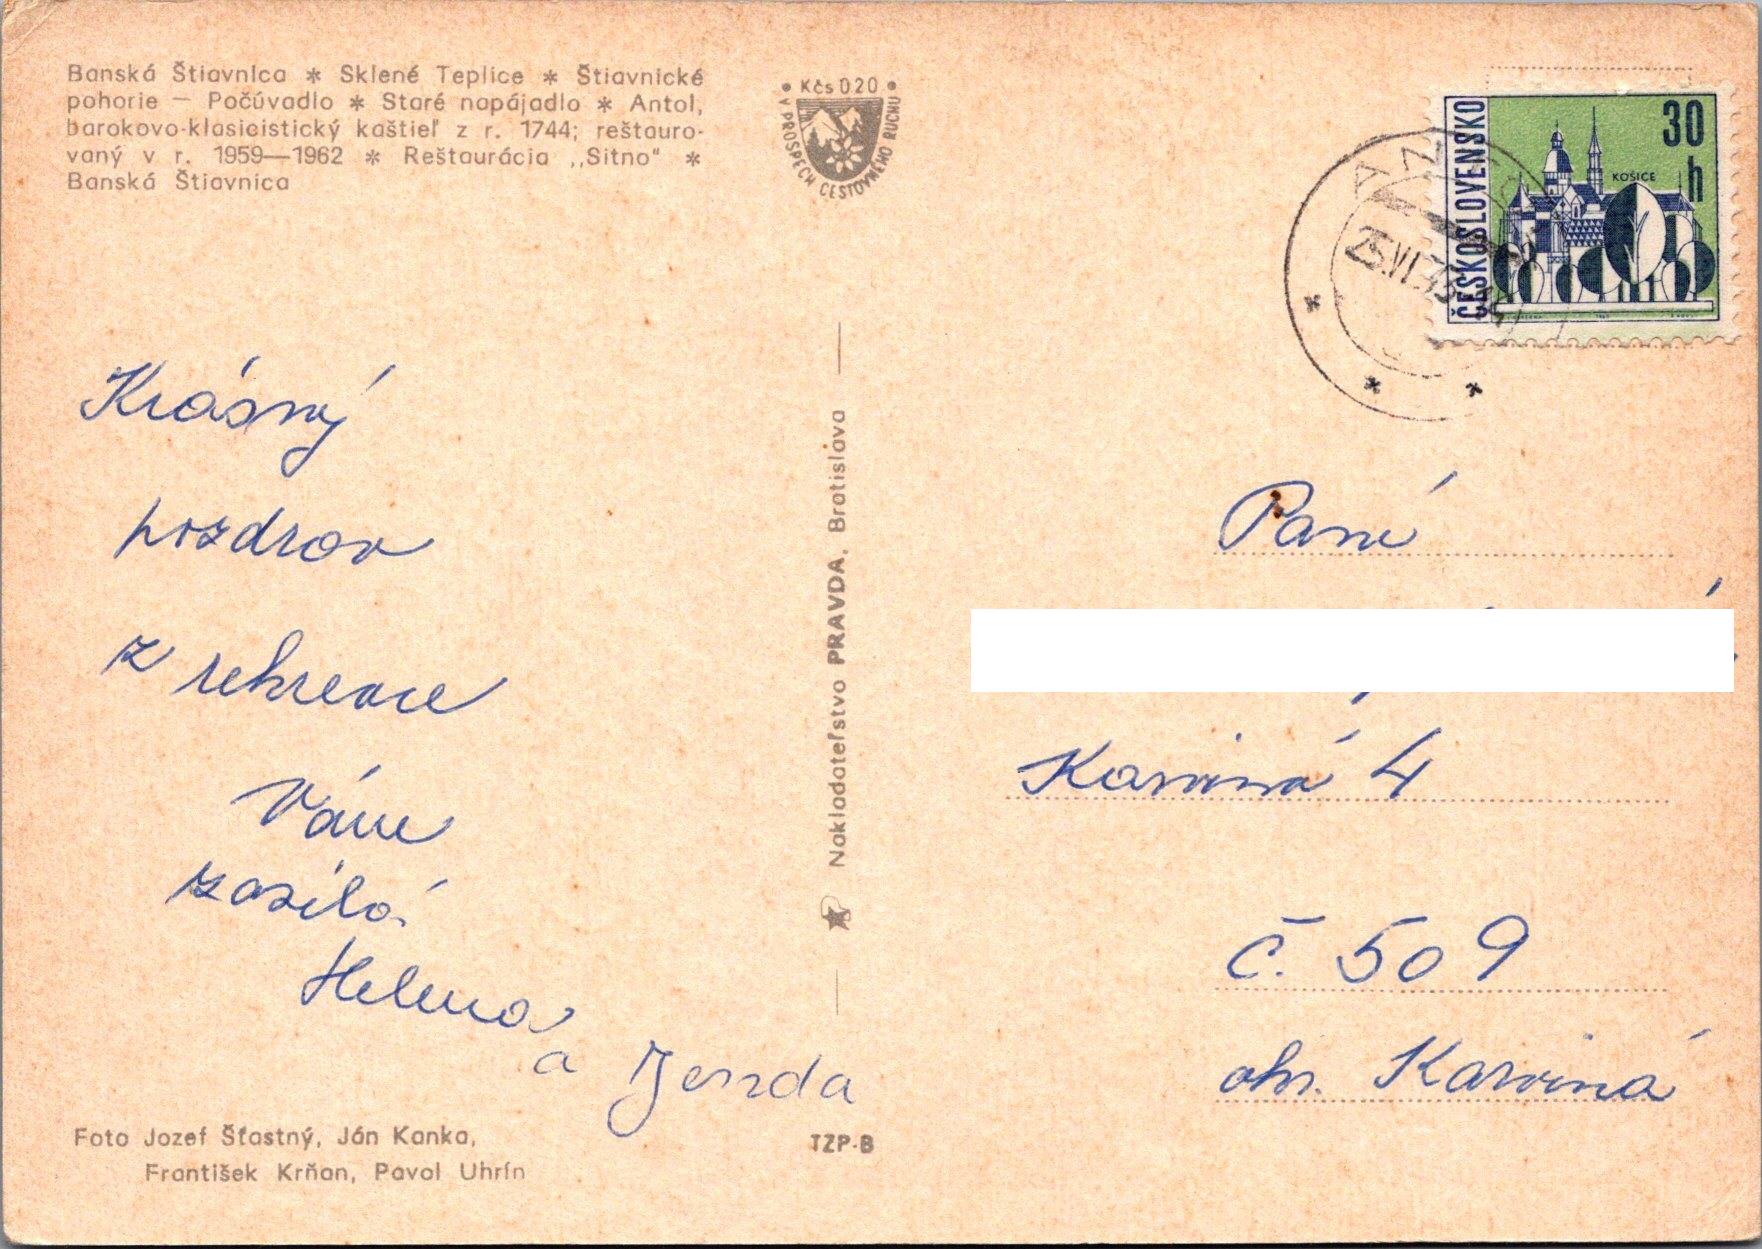 Banská Štiavnica * Sklené Teplice * Štiavnické
pohorie — Počúvadlo * Staré napájadlo * Antol,
barokovo-klasicistický kaštieľ z r. 1744; reštauro-
vaný v r. 1959—1962 * Reštaurácia „Sitno" *
Banská Štiavnica
• Kčs 0.20 •
V PROSPECH CESTOVNÉHO RUCHU
ČESKOSLOVENSKO
30
h
KOŠICE
25.VI.
Krásný
pozdrav
z rekreace
Vám
zasílá
Helena
a Jenda
Nakladateľstvo PRAVDA, Bratislava
Paní
Karviná 4
č. 509
okr. Karviná
Foto Jozef Šťastný, Ján Kanka,
František Krňan, Pavol Uhrín
TZP-B